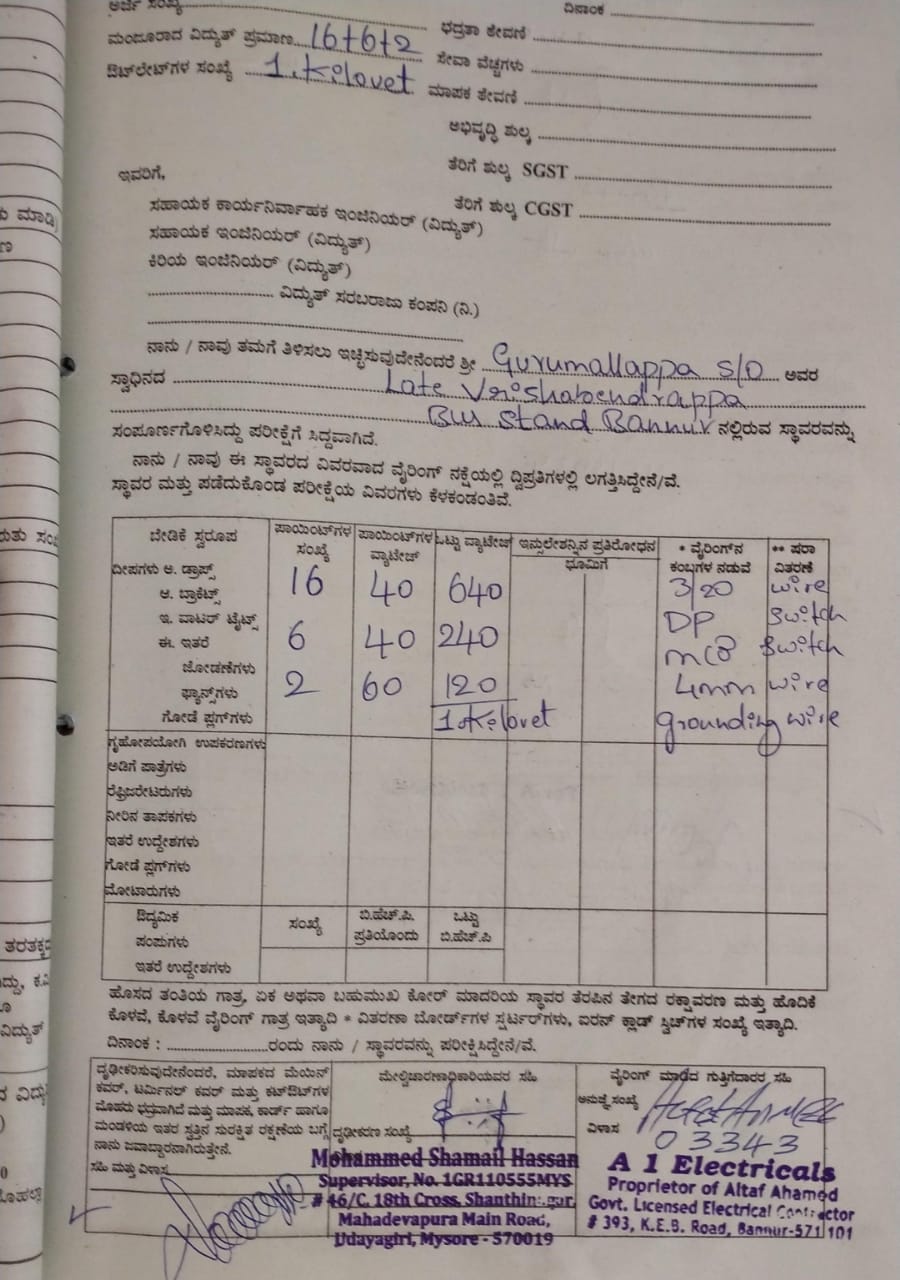 ಅರ್ಜಿ ಸಂಖ್ಯೆ
ದಿನಾಂಕ
ಮಂಜೂರಾದ ವಿದ್ಯುತ್ ಪ್ರಮಾಣ 16+6+2
ಭದ್ರತಾ ಠೇವಣಿ
ಔಟ್‌ಲೇಟ್‌ಗಳ ಸಂಖ್ಯೆ 1.Kilovet
ಸೇವಾ ವೆಚ್ಚಗಳು
ಮಾಪಕ ಠೇವಣಿ
ಅಭಿವೃದ್ಧಿ ಶುಲ್ಕ
ತೆರಿಗೆ ಶುಲ್ಕ SGST
ಇವರಿಗೆ,
ತೆರಿಗೆ ಶುಲ್ಕ CGST
ಸಹಾಯಕ ಕಾರ್ಯನಿರ್ವಾಹಕ ಇಂಜಿನಿಯರ್ (ವಿದ್ಯುತ್)
ಸಹಾಯಕ ಇಂಜಿನಿಯರ್ (ವಿದ್ಯುತ್)
ಕಿರಿಯ ಇಂಜಿನಿಯರ್ (ವಿದ್ಯುತ್)
ವಿದ್ಯುತ್ ಸರಬರಾಜು ಕಂಪನಿ (ನಿ.)
ನಾನು / ನಾವು ತಮಗೆ ತಿಳಿಸಲು ಇಚ್ಛಿಸುವುದೇನೆಂದರೆ ಶ್ರೀ Gurumallappa S/O ಅವರ
ಸ್ವಾಧಿನದ Late Vrishabendrappa
Bus Stand Bannur ನಲ್ಲಿರುವ ಸ್ಥಾವರವನ್ನು
ಸಂಪೂರ್ಣಗೊಳಿಸಿದ್ದು ಪರೀಕ್ಷೆಗೆ ಸಿದ್ದವಾಗಿದೆ.
ನಾನು / ನಾವು ಈ ಸ್ಥಾವರದ ವಿವರವಾದ ವೈರಿಂಗ್ ನಕ್ಷೆಯಲ್ಲಿ ದ್ವಿಪ್ರತಿಗಳಲ್ಲಿ ಲಗತ್ತಿಸಿದ್ದೇನೆ/ವೆ.
ಸ್ಥಾವರ ಮತ್ತು ಪಡೆದುಕೊಂಡ ಪರೀಕ್ಷೆಯ ವಿವರಗಳು ಕೆಳಕಂಡಂತಿವೆ.
ಬೇಡಿಕೆ ಸ್ವರೂಪ ಪಾಯಿಂಟ್‌ಗಳ ಸಂಖ್ಯೆ ಪಾಯಿಂಟ್‌ಗಳ ವ್ಯಾಟೇಜ್ ಒಟ್ಟು ವ್ಯಾಟೇಜ್ ಇನ್ಸುಲೇಶನ್ನಿನ ಪ್ರತಿರೋಧನ ಭೂಮಿಗೆ * ವೈರಿಂಗ್‌ನ ಕಂಬಗಳ ನಡುವೆ ** ಷರಾ ವಿತರಣೆ
ದೀಪಗಳು ಅ. ಡ್ರಾಪ್ಸ್
ಆ. ಬ್ರಾಕೆಟ್ಸ್ 16 40 640 3/20 wire
ಇ. ವಾಟರ್ ಟೈಟ್ಸ್ DP Switch
ಈ. ಇತರೆ 6 40 240 MCB Switch
ಜೋಡಣೆಗಳು
ಫ್ಯಾನ್ಸ್‌ಗಳು 2 60 120 4mm wire
ಗೋಡೆ ಪ್ಲಗ್‌ಗಳು 1.Kilovet grounding wire
ಗೃಹೋಪಯೋಗಿ ಉಪಕರಣಗಳು
ಅಡಿಗೆ ಪಾತ್ರೆಗಳು
ರೆಫ್ರಿಜರೇಟರುಗಳು
ನೀರಿನ ತಾಪಕಗಳು
ಇತರೆ ಉದ್ದೇಶಗಳು
ಗೋಡೆ ಪ್ಲಗ್‌ಗಳು
ಮೋಟಾರುಗಳು
ಔದ್ಯಮಿಕ ಸಂಖ್ಯೆ ಬಿ.ಹೆಚ್.ಪಿ. ಪ್ರತಿಯೊಂದು ಒಟ್ಟು ಬಿ.ಹೆಚ್.ಪಿ
ಪಂಪುಗಳು
ಇತರೆ ಉದ್ದೇಶಗಳು
ಹೊಸದ ತಂತಿಯ ಗಾತ್ರ, ಏಕ ಅಥವಾ ಬಹುಮುಖ ಕೋರ್ ಮಾದರಿಯ ಸ್ಥಾವರ ತೆರಪಿನ ತೇಗದ ರಕ್ಷಾವರಣ ಮತ್ತು ಹೊದಿಕೆ
ಕೊಳವೆ, ಕೊಳವೆ ವೈರಿಂಗ್ ಗಾತ್ರ ಇತ್ಯಾದಿ * ವಿತರಣಾ ಬೋರ್ಡ್‌ಗಳ ಸ್ಟರ್ಟರ್‌ಗಳು, ಐರನ್ ಕ್ಲಾಡ್ ಸ್ವಿಚ್‌ಗಳ ಸಂಖ್ಯೆ ಇತ್ಯಾದಿ.
ದಿನಾಂಕ : ರಂದು ನಾನು / ಸ್ಥಾವರವನ್ನು ಪರೀಕ್ಷಿಸಿದ್ದೇನೆ/ವೆ.
ದೃಢೀಕರಿಸುವುದೇನೆಂದರೆ, ಮಾಪಕದ ಮೆಯಿನ್
ಕವರ್, ಟರ್ಮಿನಲ್ ಕವರ್ ಮತ್ತು ಕಟ್‌ಔಟ್‌ಗಳ
ಮೊಹರು ಭದ್ರವಾಗಿದೆ ಮತ್ತು ಮಾಪಕ, ಕಾರ್ಡ್ ಹಾಗೂ
ಮಂಡಳಿಯ ಇತರ ಸ್ವತ್ತಿನ ಸುರಕ್ಷಿತ ರಕ್ಷಣೆಯ ಬಗ್ಗೆ
ನಾನು ಜವಾಬ್ದಾರನಾಗಿರುತ್ತೇನೆ.
ಸಹಿ ಮತ್ತು ವಿಳಾಸ
ಮೇಲ್ವಿಚಾರಣಾಧಿಕಾರಿಯವರ ಸಹಿ
ದೃಢೀಕರಣ ಸಂಖ್ಯೆ
Mohammed Shamail Hassan
Supervisor, No. 1GR110555MYS
# 46/C, 18th Cross, Shanthinagar,
Mahadevapura Main Road,
Udayagiri, Mysore - 570019
ವೈರಿಂಗ್ ಮಾಡಿದ ಗುತ್ತಿಗೆದಾರರ ಸಹಿ
ಅನುಜ್ಞೆ ಸಂಖ್ಯೆ
ವಿಳಾಸ 03343
A 1 Electricals
Proprietor of Altaf Ahamed
Govt. Licensed Electrical Contractor
# 393, K.E.B. Road, Bannur-571 101